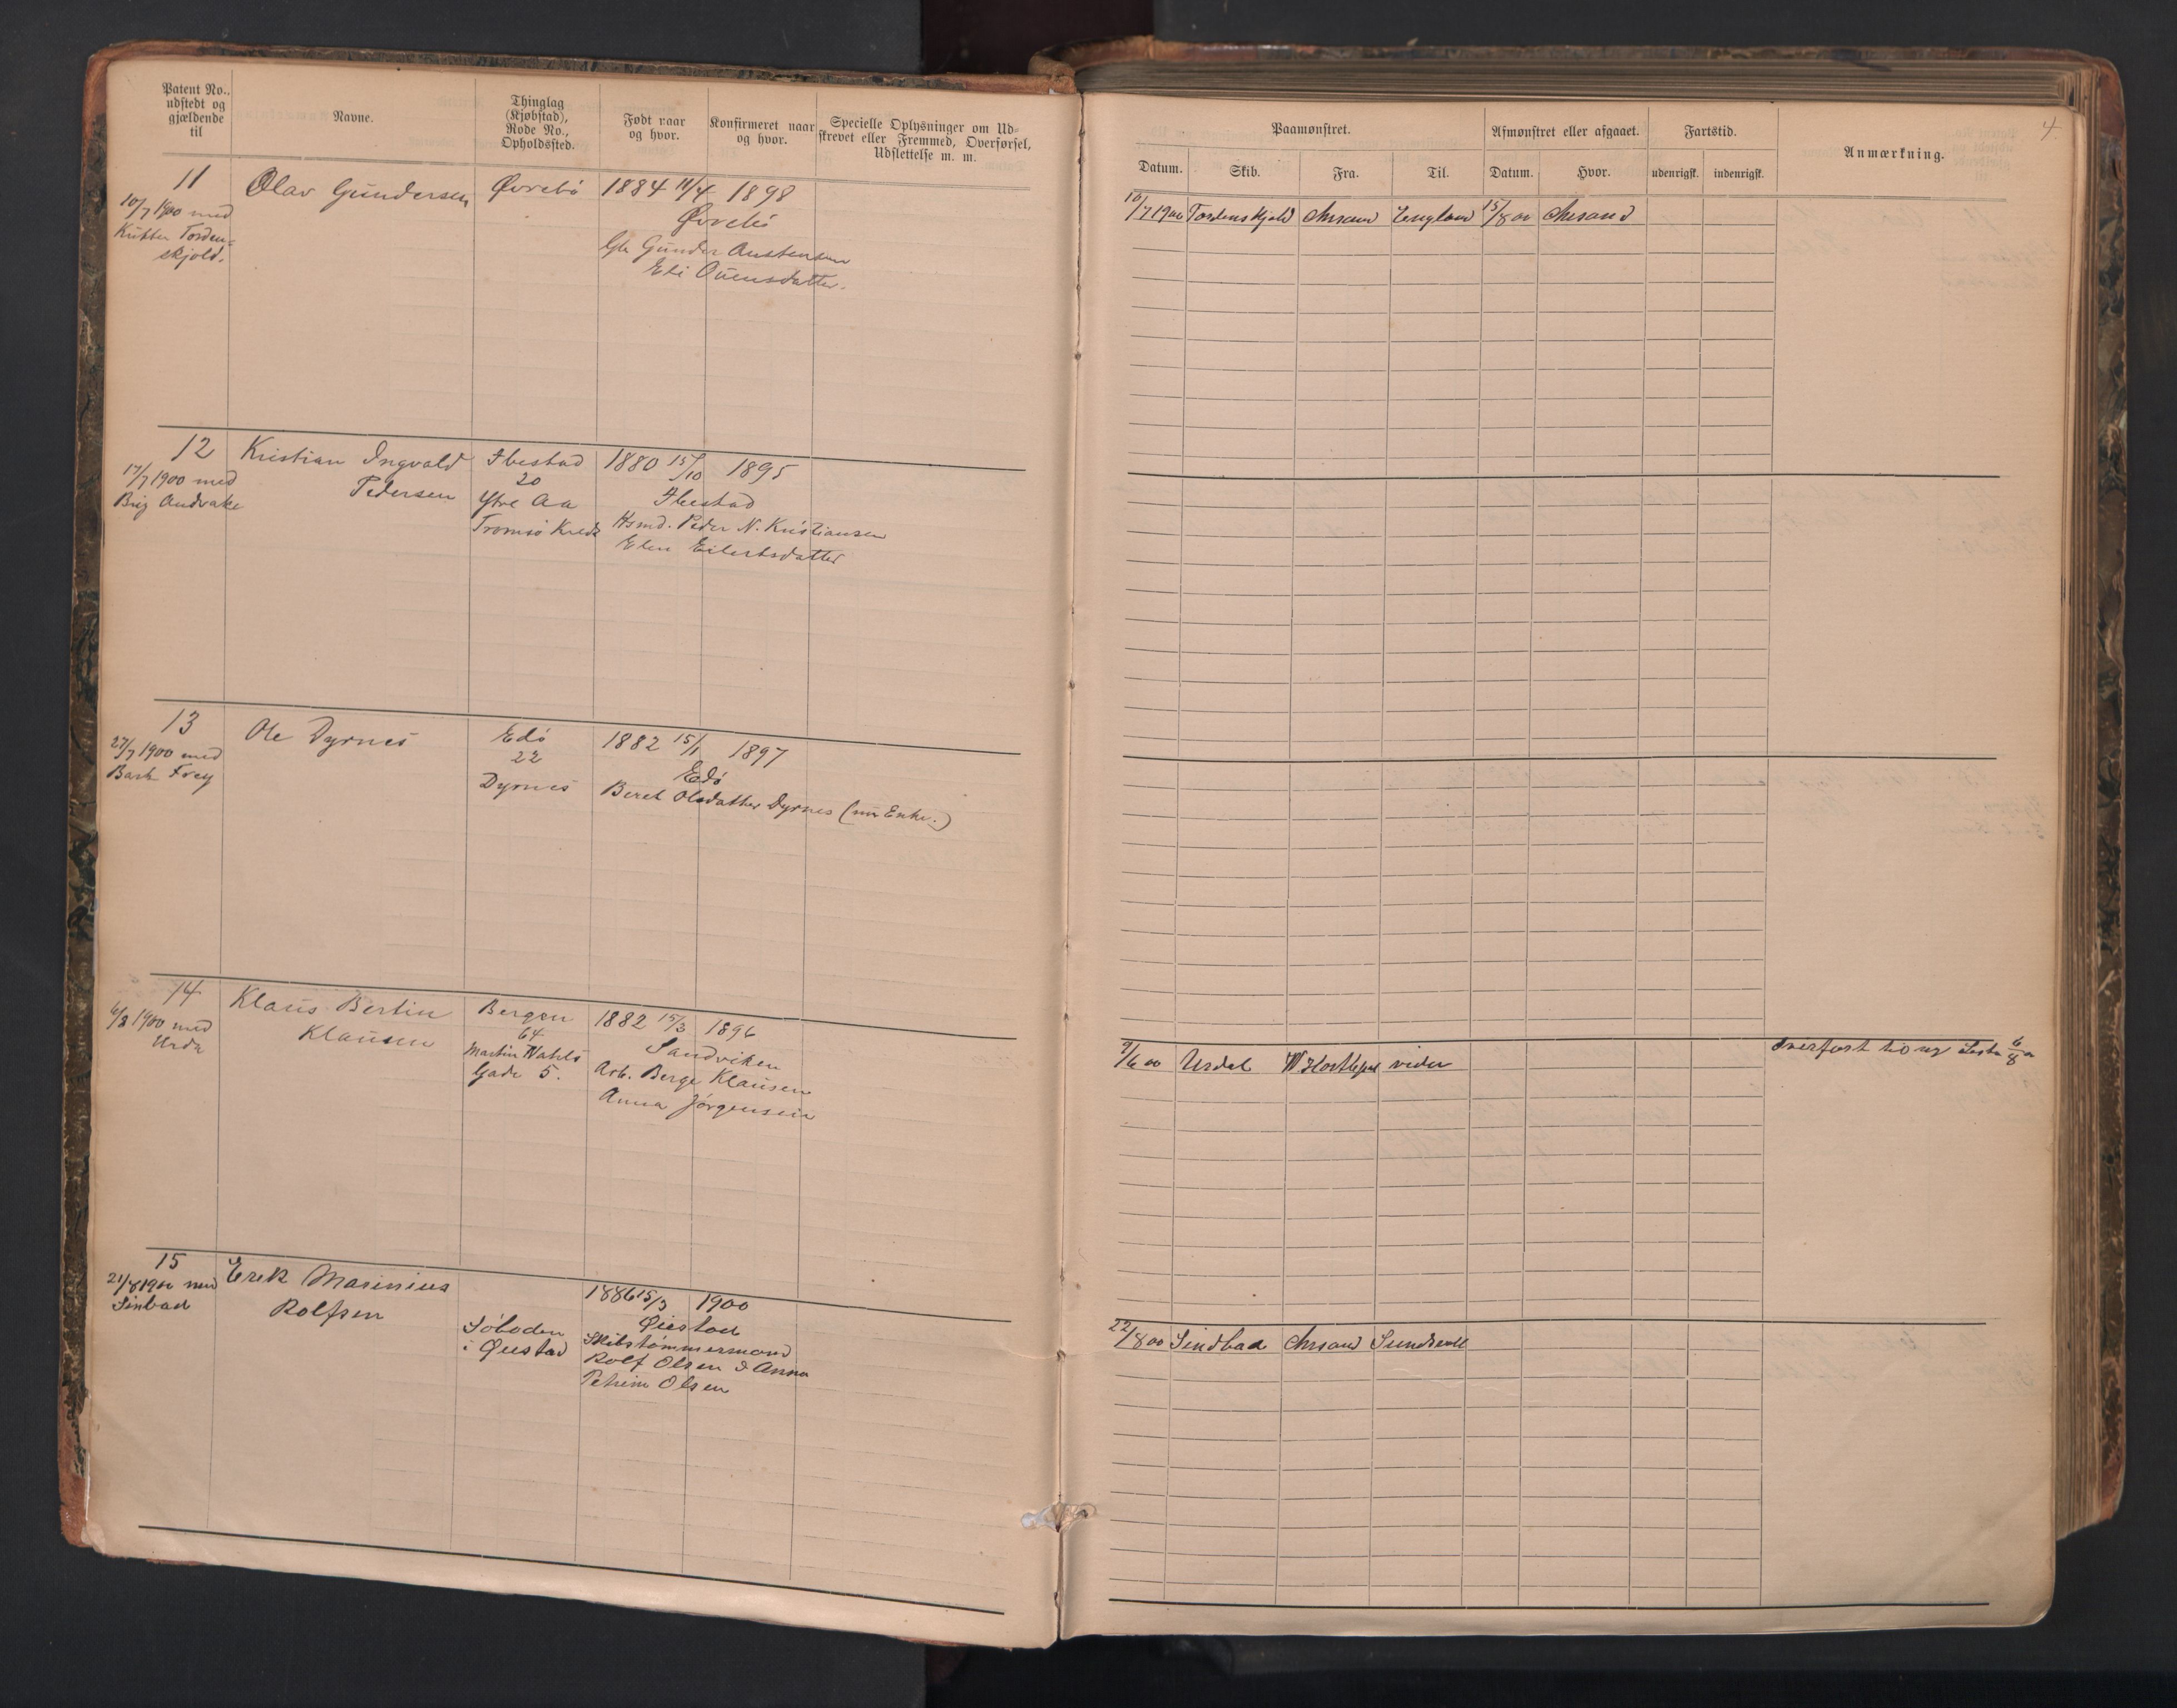 Patent No.,
udstedt og
gjældende
til
Navne.
Thinglag
(Kjøbstad),
Rode No.,
Opholdssted.
Født naar
og hvor.
Konfirmeret naar
og hvor.
Specielle Oplysninger om Ud=
skrevet eller Fremmed, Overførsel,
Udslettelse m. m.
11
10/7 1900 med
Kutter Torden=
skjold.
Olav Gundersen
Øvrebö
1884 11/4 1898
Øvrebö
Gbr Gunder Austensen
Eli Ouensdatter.
12
17/7 1900 med
Brig Andvake
Kristian Ingvald
Pedersen
Ibestad
20
Ytre Aa
Tromsö Kreds
1880 15/10 1895
Ibestad
Hsmd. Peder N. Kristiansen
Elen Eilertsdatter
13
27/7 1900 med
Bark Frey
Ole Dyrnes
Edö
22
Dyrnes
1882 15/1 1897
Edö
Beret Olsdatter Dyrnes (nu Enke.)
14
6/8 1900 med
Urda
Klaus Bertin
Klausen
Bergen
64
Martin Vahls
Gade 5.
1882 15/3 1896
Sandviken
Arb. Berge Klausen
Anna Jörgensen
15
21/8 1900 med
Sinbad
Erik Marinius
Rolfsen
Söboden
i Øiestad
1886 15/3 1900
Øiestad
Skibstømmermand
Rolf Olsen & Anna
Petrine Olsen
4.
Paamønstret.
Afmønstret eller afgaaet.
Fartstid.
Anmærkning.
Datum.
Skib.
Fra.
Til.
Datum.
Hvor.
udenrigsk.
indenrigsk.
10/7 1900 Tordenskjold Chrsand England 15/8 00 Chrsand
9/6 00 Urdal W Hartlepool videre
Overført til ny 6/8
22/8 00 Sindbad Chrsand Sundsvall